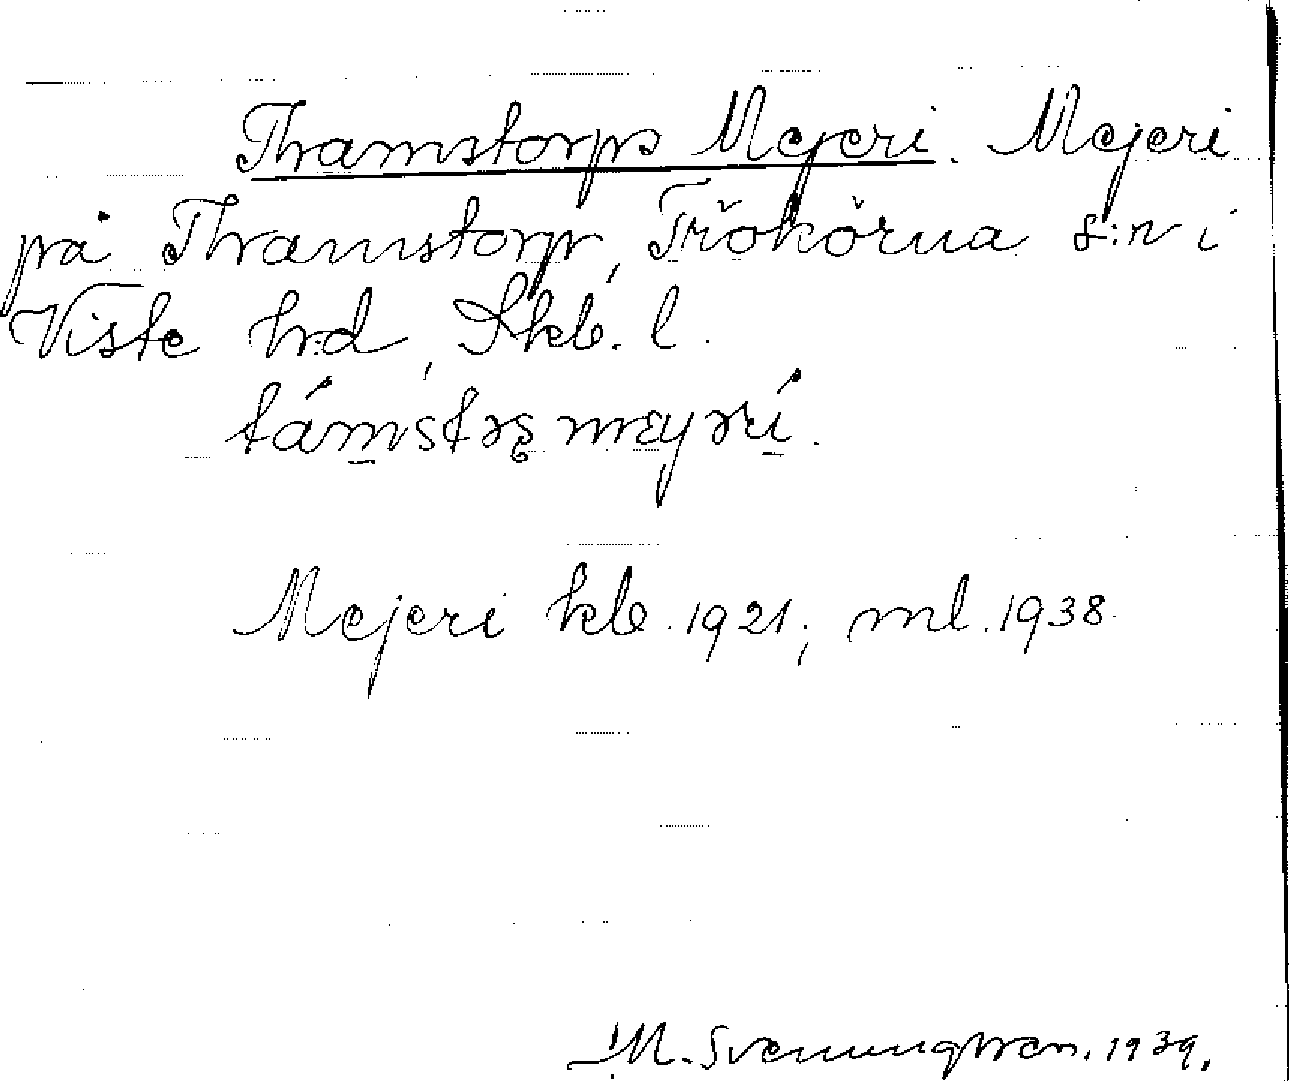 Thamstorps Mejeri. Mejeri
på Thamstorp, Trökörna s:n i
Viste hd, Skb. l.
Mejeri kb. 1921; ml. 1938
M. Svenungsson. 1939.